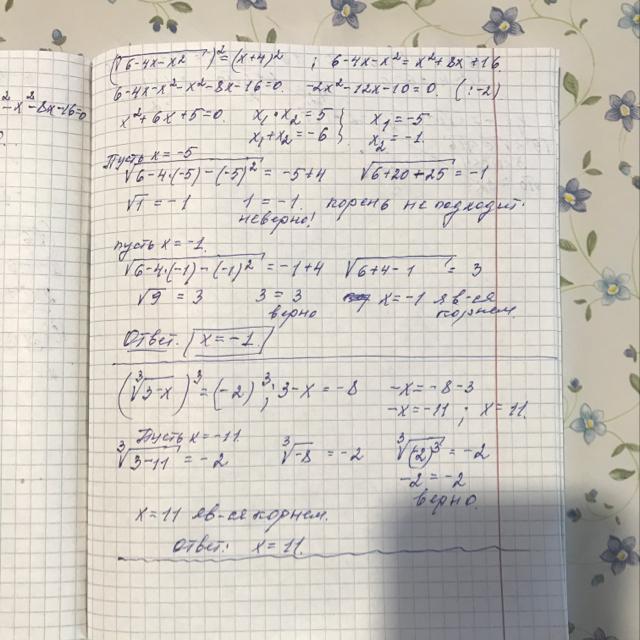 ²-x²-8x-16=0
(√6-4x-x²)² = (x+4)² ; 6-4x-x² = x²+8x+16.
6-4x-x²-x²-8x-16=0. -2x²-12x-10=0. (:-2)
x²+6x+5=0. x₁•x₂=5 } x₁=-5
x₁+x₂=-6 } x₂=-1.
Пусть x=-5
√6-4•(-5)-(-5)² = -5+4 √6+20+25 = -1
√1 = -1 1 = -1. корень не подходит.
неверно!
пусть x=-1.
√6-4•(-1)-(-1)² = -1+4 √6+4-1 = 3
√9 = 3 3 = 3 x=-1 яв-ся
верно корнем.
Ответ. x=-1.
(³√3-x)³ = (-2)³; 3-x=-8 -x=-8-3
-x=-11 ; x=11.
Пусть x=-11
³√3-11 = -2 ³√-8 = -2 ³√(-2)³ = -2
-2=-2
верно.
x=11 яв-ся корнем.
Ответ: x=11.